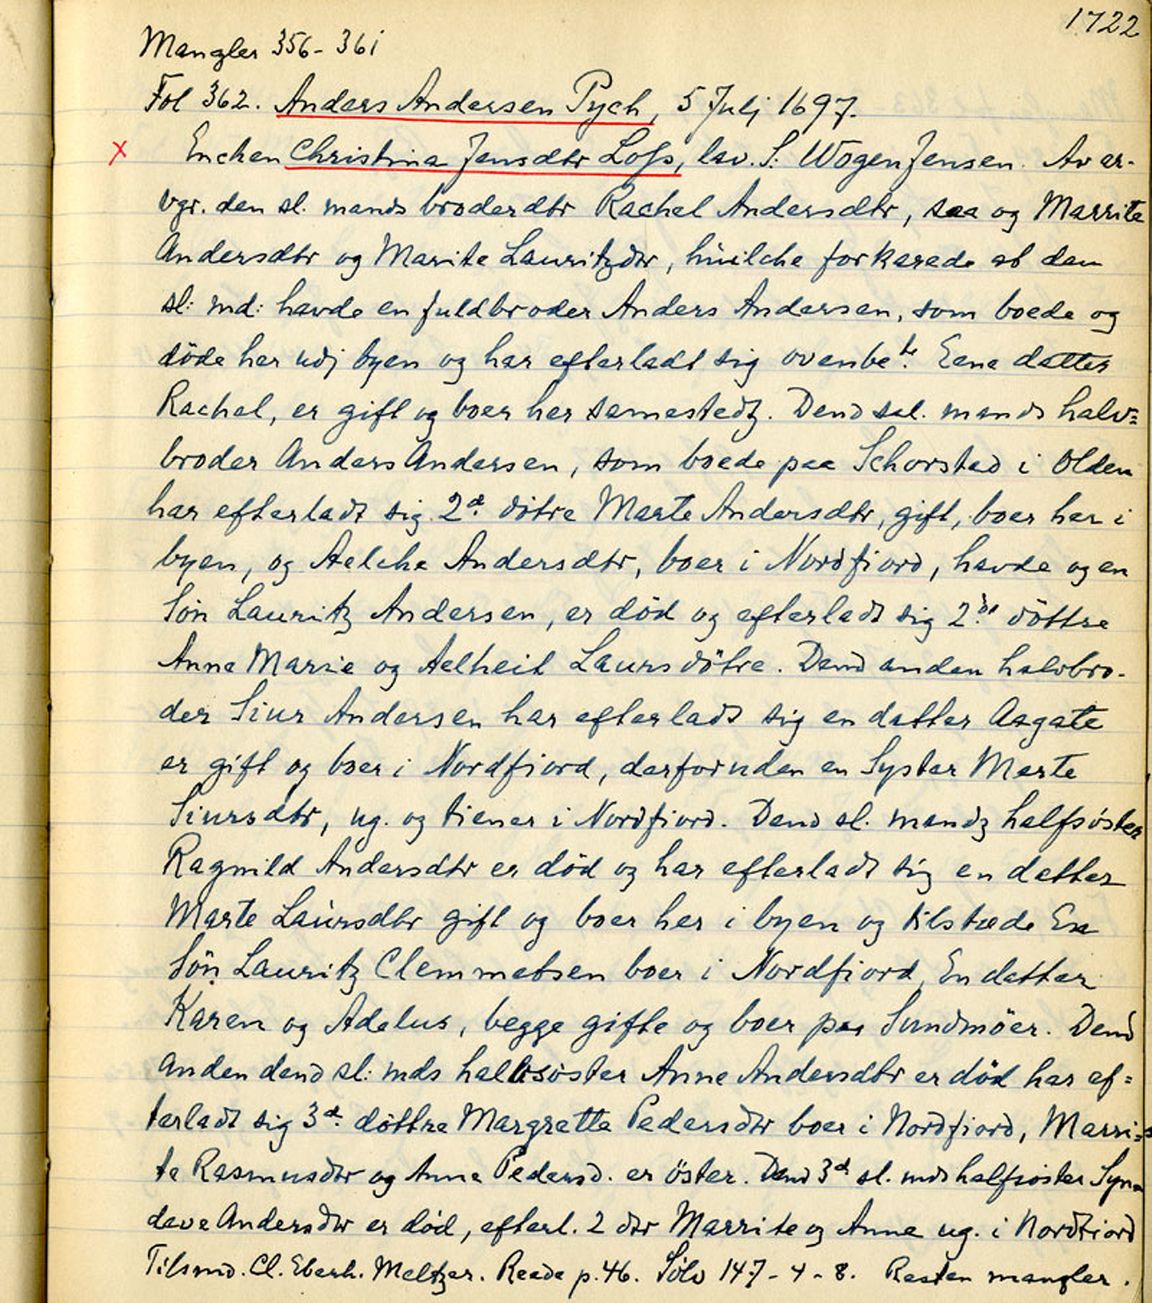 1722
Mangler 356-361
Fol 362. Anders Andersen Pych, 5 Julj 1697.
x Enchen Christina Jensdtr Loss, lav. S: Wogen Jensen. Av ar-
vgr. den sl. mands broderdtr Rachel Andersdtr, saa og Marrite
Andersdtr og Marite Lauritzdtr, huilche forkarede at den
sl: md: havde en fuldbroder Anders Andersen, som boede og
døde her udj byen og har efterladt sig ovenbe.te Eene datter
Rachel, er gift og boer her samestedtz. Dend sal. mands halv=
broder Anders Andersen, som boede paa Schorstad i Olden
har efterladt sig 2d. døtre Marte Andersdtr, gift, boer her i
byen, og Aelche Andersdtr, boer i Nordfiord, havde og en
Søn Lauritz Andersen, er død og efterladt sig 2de døttre
Anne Marie og Aelheit Laursdøtre. Dend anden halvbro-
der Siur Andersen har efterladt sig en datter Aagate
er gift og boer i Nordfiord, desforuden en Syster Merte
Siursdtr, ug. og tiener i Nordfiord. Dend sl. mandz halfsøster
Ragnild Andersdtr er død og har efterladt sig en datter
Marte Laursdtr gift og boer her i byen og tilstæde En
Søn Lauritz Clemmetsen boer i Nordfiord, En datter
Karen og Adelus, begge gifte og boer paa Sundmöer. Dend
anden dend sl: mds halbsøster Anne Andersdtr er død har ef=
terladt sig 3d. døttre Margrette Pedersdtr boer i Nordfiord, Marri=
te Rasmusdtr og Anne Pedersd. er öster. Dend 3d sl. mds halfsøster Syn
dave Andersdtr er død, efterl. 2 dtr Marrite og Anne ug. i Nordfiord
Tilsmd. Cl. Eberh. Meltzer. Reede p. 46. Sölv 147-4-8. Resten mangler.